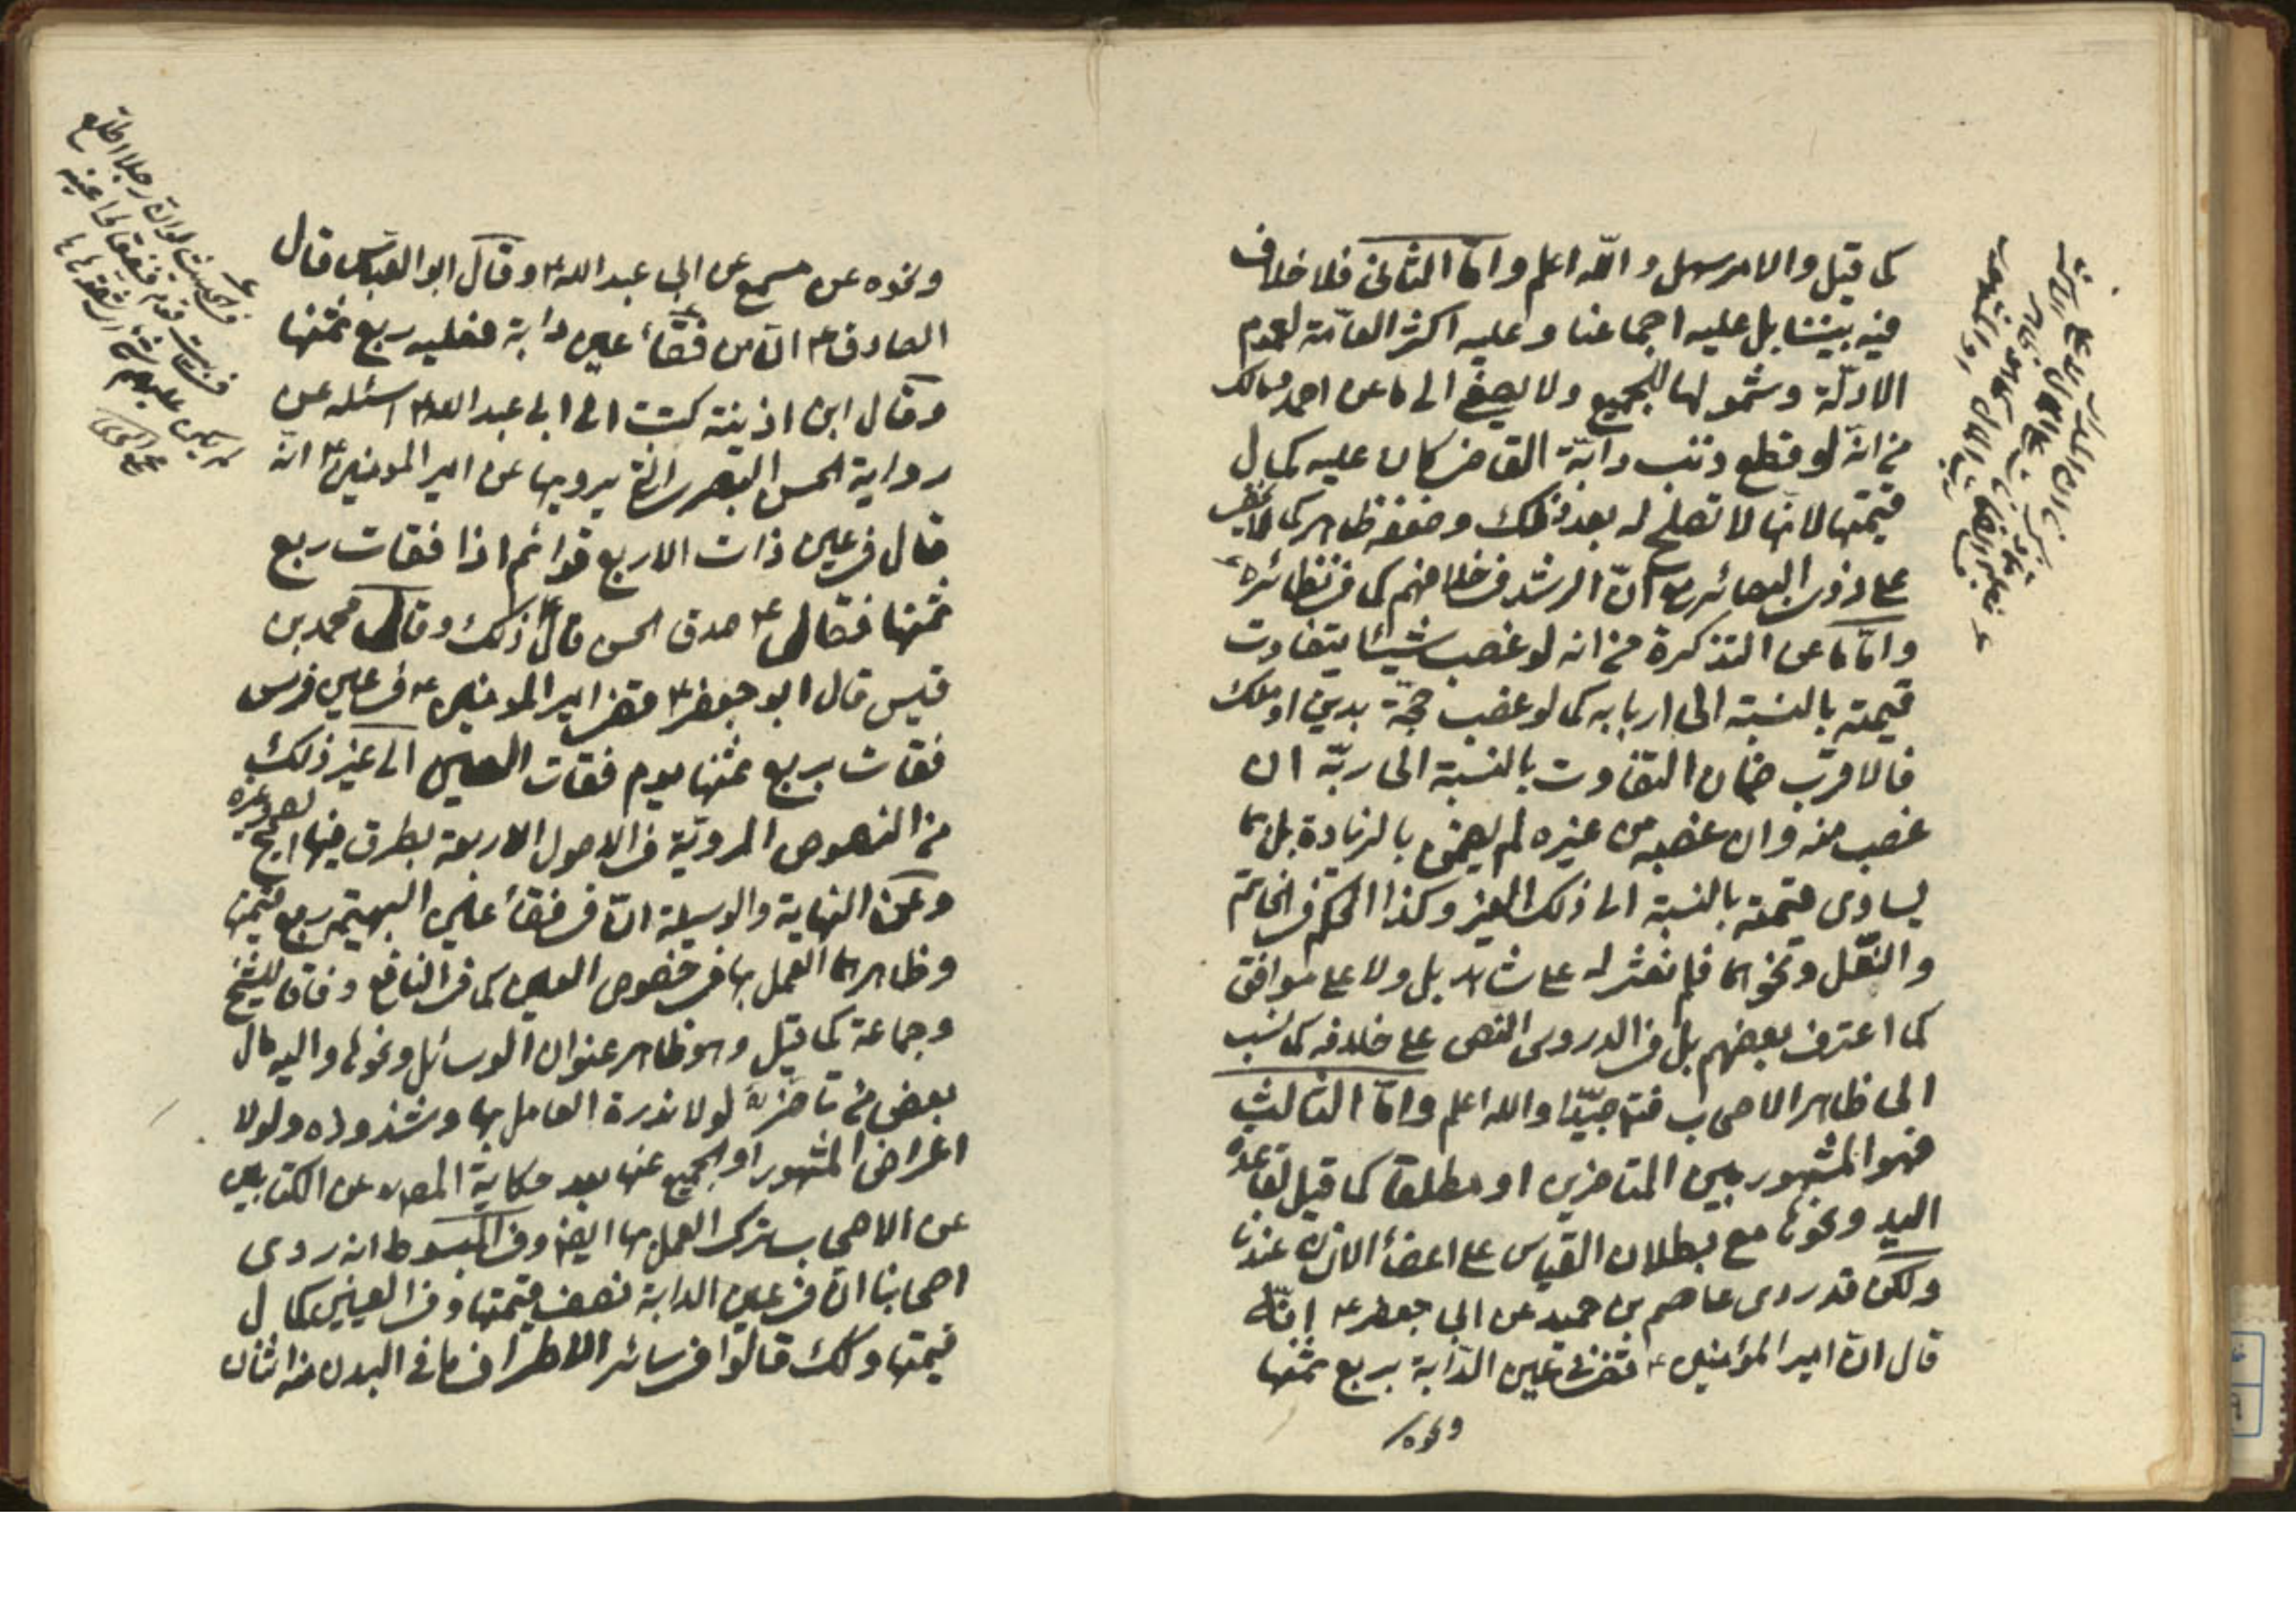 كما قيل والامر سهل والله اعلم واما الثاني فلا خلاف
فيه بيننا بل عليه اجماعنا وعليه اكثر العامّة لعموم
الادلّة وشمولها للجميع ولا يصغى الى ما عن احمد ومالك
من انّه لو قطع ذنب دابّة القاضي كان عليه كمال
قيمتها لانّها لا تصلح له بعد ذلك وضعفه ظاهر كما لا يخفى
على ذوي البصائر مع انّ الرشد في خلافهم كما في نظائره
وامّا ما عن التذكرة من انه لو غصب شيئا يتفاوت
قيمته بالنسبة الى اربابه كما لو غصب حجّة بدين او ملك
فالاقرب ضمان التفاوت بالنسبة الى ربّه ان
غصب منه وان غصبه من غيره لم يضمن بالزيادة بل بما
يساوي قيمته بالنسبة الى ذلك الغير وكذا الحكم في الخاتم
والنعل ونحوهما فلم نعثر له على شاهد بل ولا على موافق
كما اعترف بعضهم بل في الدروس النص على خلافه كما نسب
الى ظاهر الاصحاب فتم جيّدا والله اعلم وامّا الثالث
فهو المشهور بين المتاخرين او مطلقا كما قيل لقاعدة
اليد ونحوها مع بطلان القياس على اعضأ الانسان عندنا
ولكن قد روى عاصم بن حميد عن ابي جعفر ع انّه
قال انّ امير المؤمنين ع قضى في عين الدّابة بربع ثمنها
ونحوه
ونحوه عن مسمع عن ابي عبد الله ع وقال ابو العبّاس قال
الصادق ع انّ من فقأ عين دابة فعليه ربع ثمنها
وقال ابن اذينة كتبت الى ابي عبد الله ع اسئله عن
رواية الحسن البصري يرويها عن امير المؤمنين ع انّه
قال في عين ذات الاربع قوائم اذا فقات ربع
ثمنها فقال ع صدق الحسن قال ع ذلك وقال محمد بن
قيس قال ابو جعفر ع قضى امير المؤمنين ع في عين فرس
فقات بربع ثمنها يوم فقات العين الى غير ذلك
من النصوص المرويّة في الاصول الاربعة بطرق فيها الصحيح وغيره
وعن النهاية والوسيلة انّ في فقأ عين البهيمة ربع قيمتها
وظاهرهما العمل بها في خصوص العين كما في النافع وفاقا للشيخ
وجماعة كما قيل وهو ظاهر عنوان الوسائل ونحوها واليه مال
بعض من تاخر لولا ندرة العامل بها وشذوذه ولولا
اعراض المشهور او الجميع عنها بعد حكاية المص عن الكتابين
عن الاصحاب ترك العمل بها ايضا وفي المبسوط انه روى
اصحابنا انّ في عين الدابة نصف قيمتها وفي العينين كمال
قيمتها وكك قالوا في سائر الاطراف مما في البدن منه اثنان